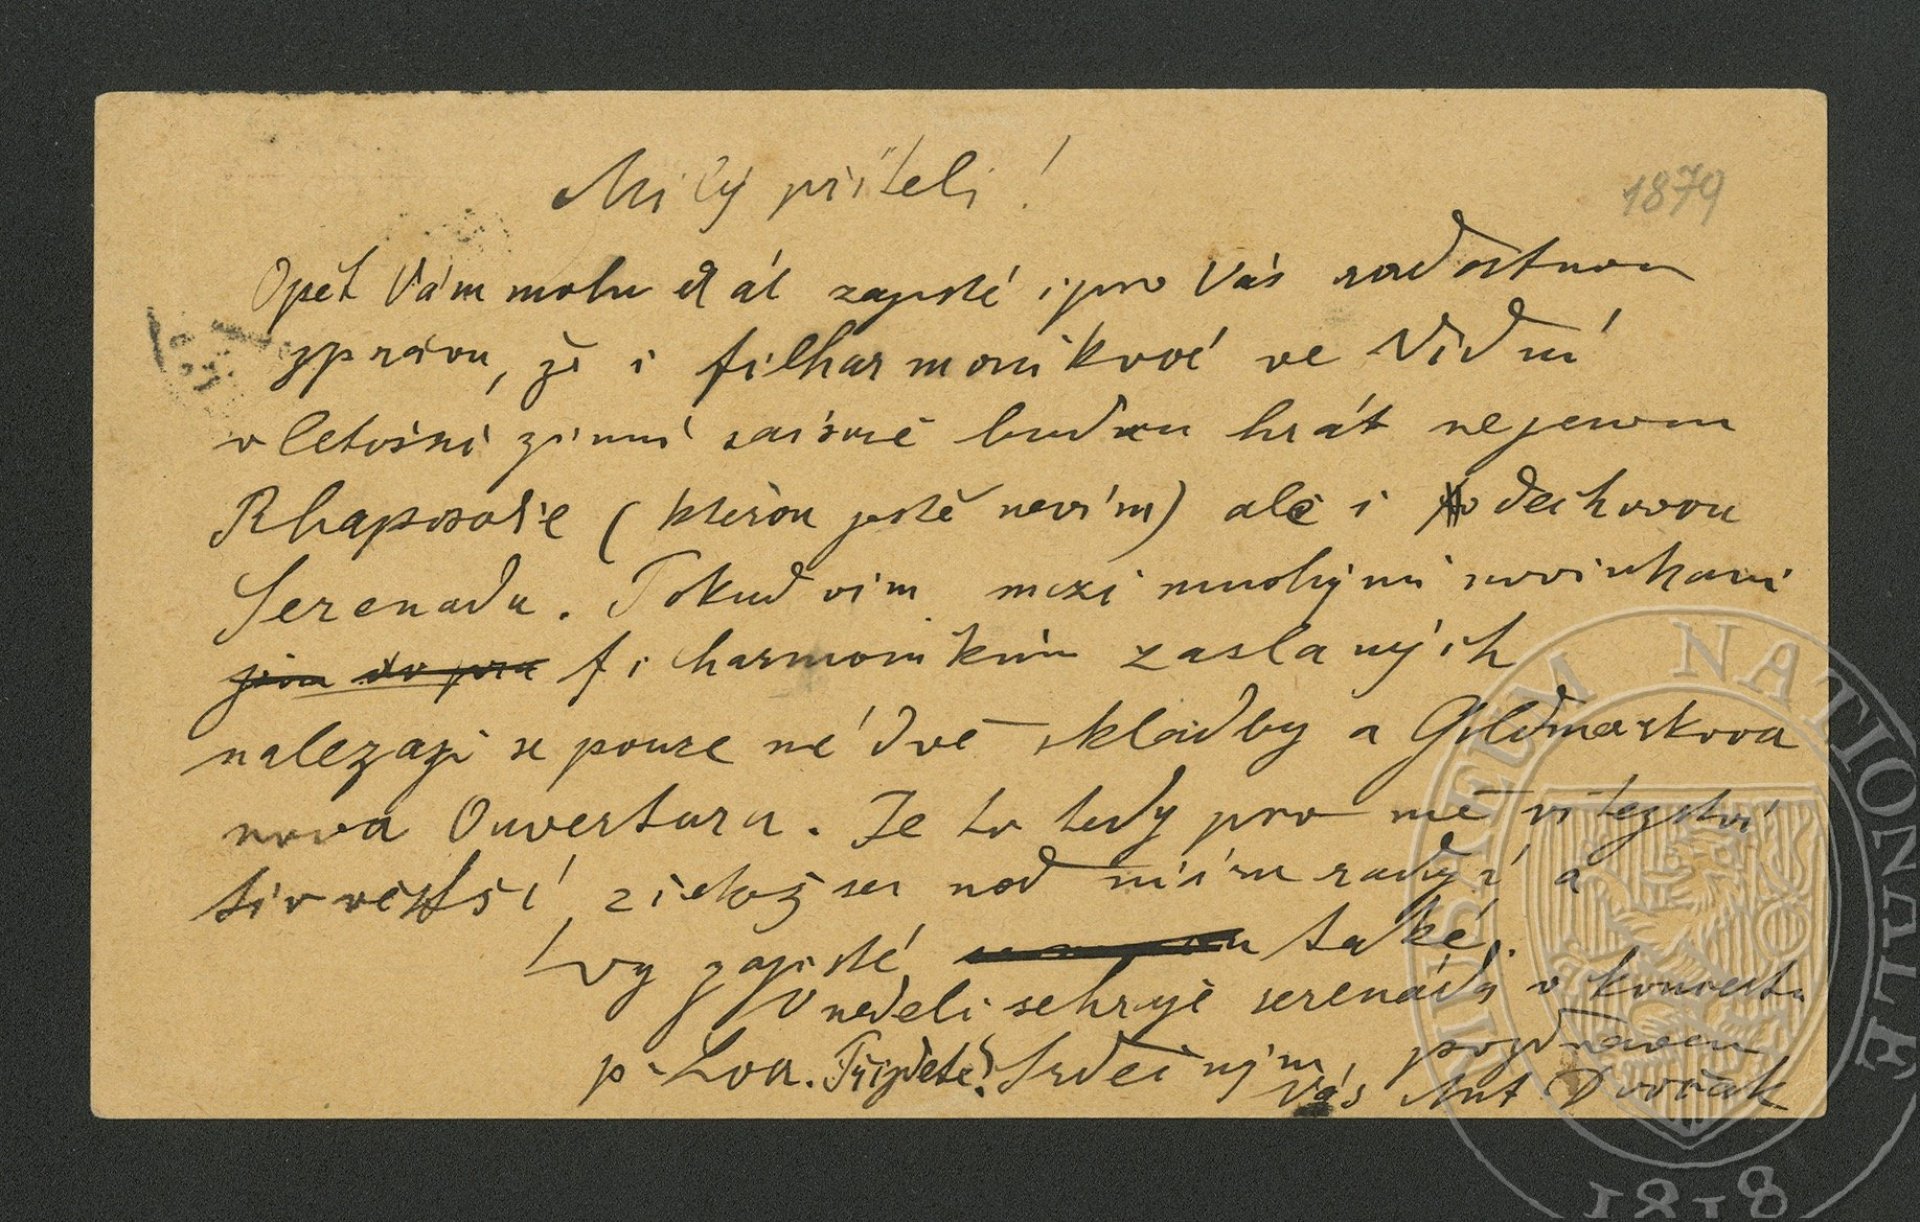 Milý příteli!
1879
Opět Vám mohu dát zajisté i pro Vás radostnou
zprávu, že i filharmonikové ve Vídni
v letošní zimní saisoně budou hrát nejenom
Rhapsodie (kterou ještě nevím) ale i dechovou
Serenadu. Pokud vim mezi mnohými novinkami
filharmonikům zaslaných
nalezají se pouze mé dvě skladby a Goldmarkova
nova Ouvertura. Je to tedy pro mě vítězství
tím větší, z čehož se nad míru raduji a
Vy zajisté také.
V neděli sehraje serenádu v koncertu
p. Lva. Přijdete? Srdečným pozdravem
Váš Ant Dvořák
MUSEUM NATIONALE
1818